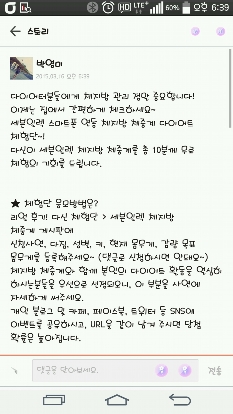 60% 오후 6:39
스토리
박영미
2015.03.16 오후 6:39
다이어터분들에게 체지방 관리 정말 중요합니다!
이제는 집에서 간편하게 체크하세요~
세븐일렉 스마트폰 연동 체지방 체중계 다이어트
체험단~!
다신이 세븐일렉 체지방 체중계를 총 10분께 무료
체험의 기회를 드립니다.
★ 체험단 응모방법은?
리얼 후기! 다신 체험단 > 세븐일렉 체지방
체중계 게시판에
신청사연, 다짐, 성별, 키, 현재 몸무게, 감량 목표
몸무게를 등록해주세요~ (댓글로 신청하시면 안돼요~)
체지방 체중계와 함께 본인의 다이어트 활동을 열심히
하시는분들을 우선으로 선정되오니, 이 부분을 사연에
자세하게 써주세요.
개인 블로그 및 카페, 페이스북, 트위터 등 SNS에
이벤트를 공유하시고, URL을 같이 남겨 주시면 당첨
확률은 높아집니다.
댓글을 달아보세요.
전송